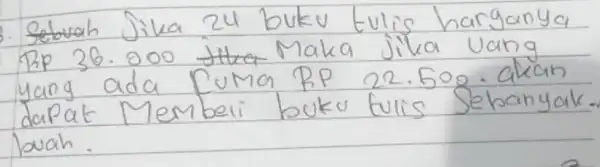 3. Sebuah Jika 24 buku tulis harganya
RP 36.000 Jika Maka jika Uang
yang ada CuMa RP 22.500. akan
daPat MeMbeli buku tulis Sebanyak..
buah.